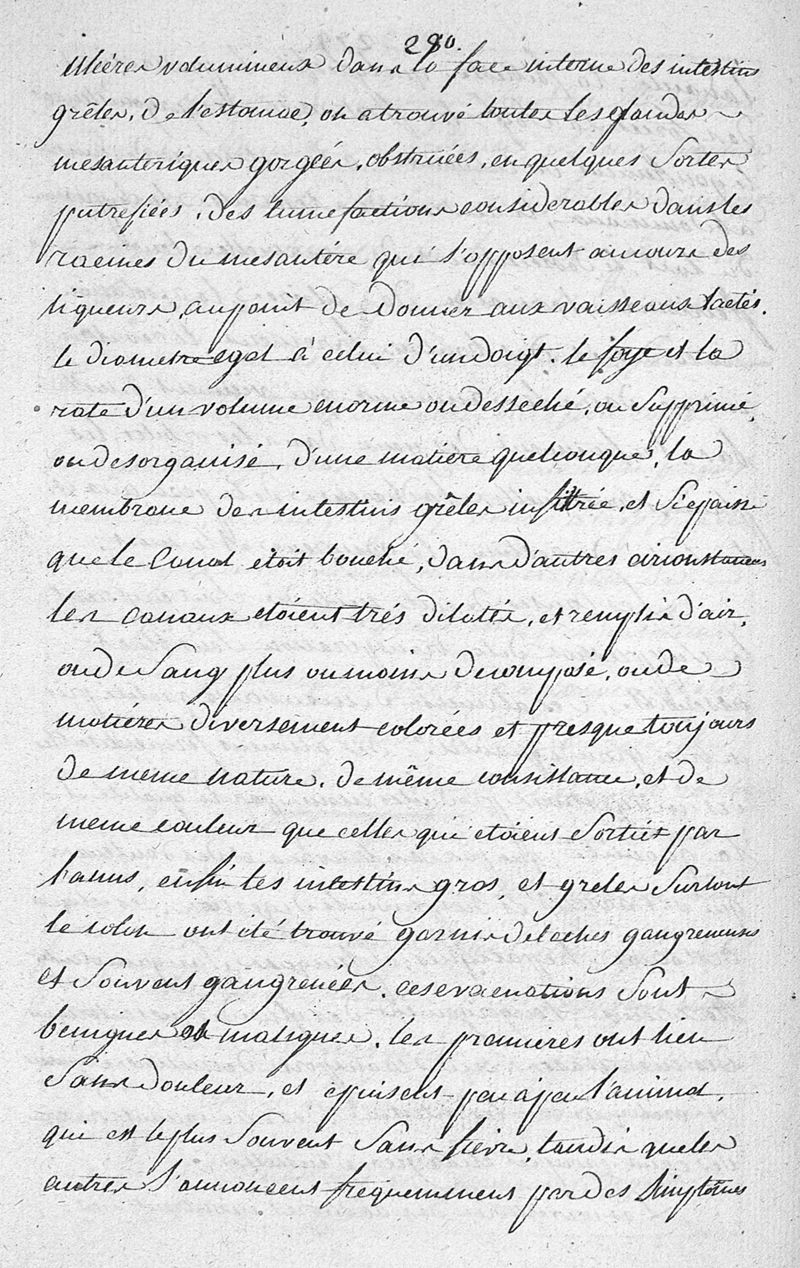 280.
ulcéres volumineux dans la face interne des intestins
grêles, de l'estomac, on a trouvé toutes les glandes
mesanteriques gorgées, obstruées, en quelques sortes
putrefiées, des tumefactions considerables dans les
racines du mesantére qui s'opposent au cours des
liqueurs, au point de donner aux vaisseaux lactés,
le diametre egal à celui d'un doigt. le foye et la
rate d'un volume enorme ou desseché, ou supprimé,
ou desorganisé, d'une matiére quelconque, la
membrane des intestins grêles infiltrée, et si epaisse
que le canal étoit bouché, dans d'autres circonstances
les canaux etoient trés dilatés, et remplis d'air,
ou de sang plus ou moins decomposé, ou de
matiéres diversement colorées et presque toujours
de meme nature, de même consistance, et de
meme couleur que celles qui etoient sorties par
l'anus, enfin les intestins gros, et greles surtout
le colon ont été trouvé garnis de taches gangreneuses
et souvent gangrenées. ces evacuations sont
benignes et malignes, les premiéres ont lieu
sans douleur, et epuisent peu à peu l'animal,
qui est le plus souvent sans fiévre, tandis que les
autres s'annoncent frequemment par des simptômes